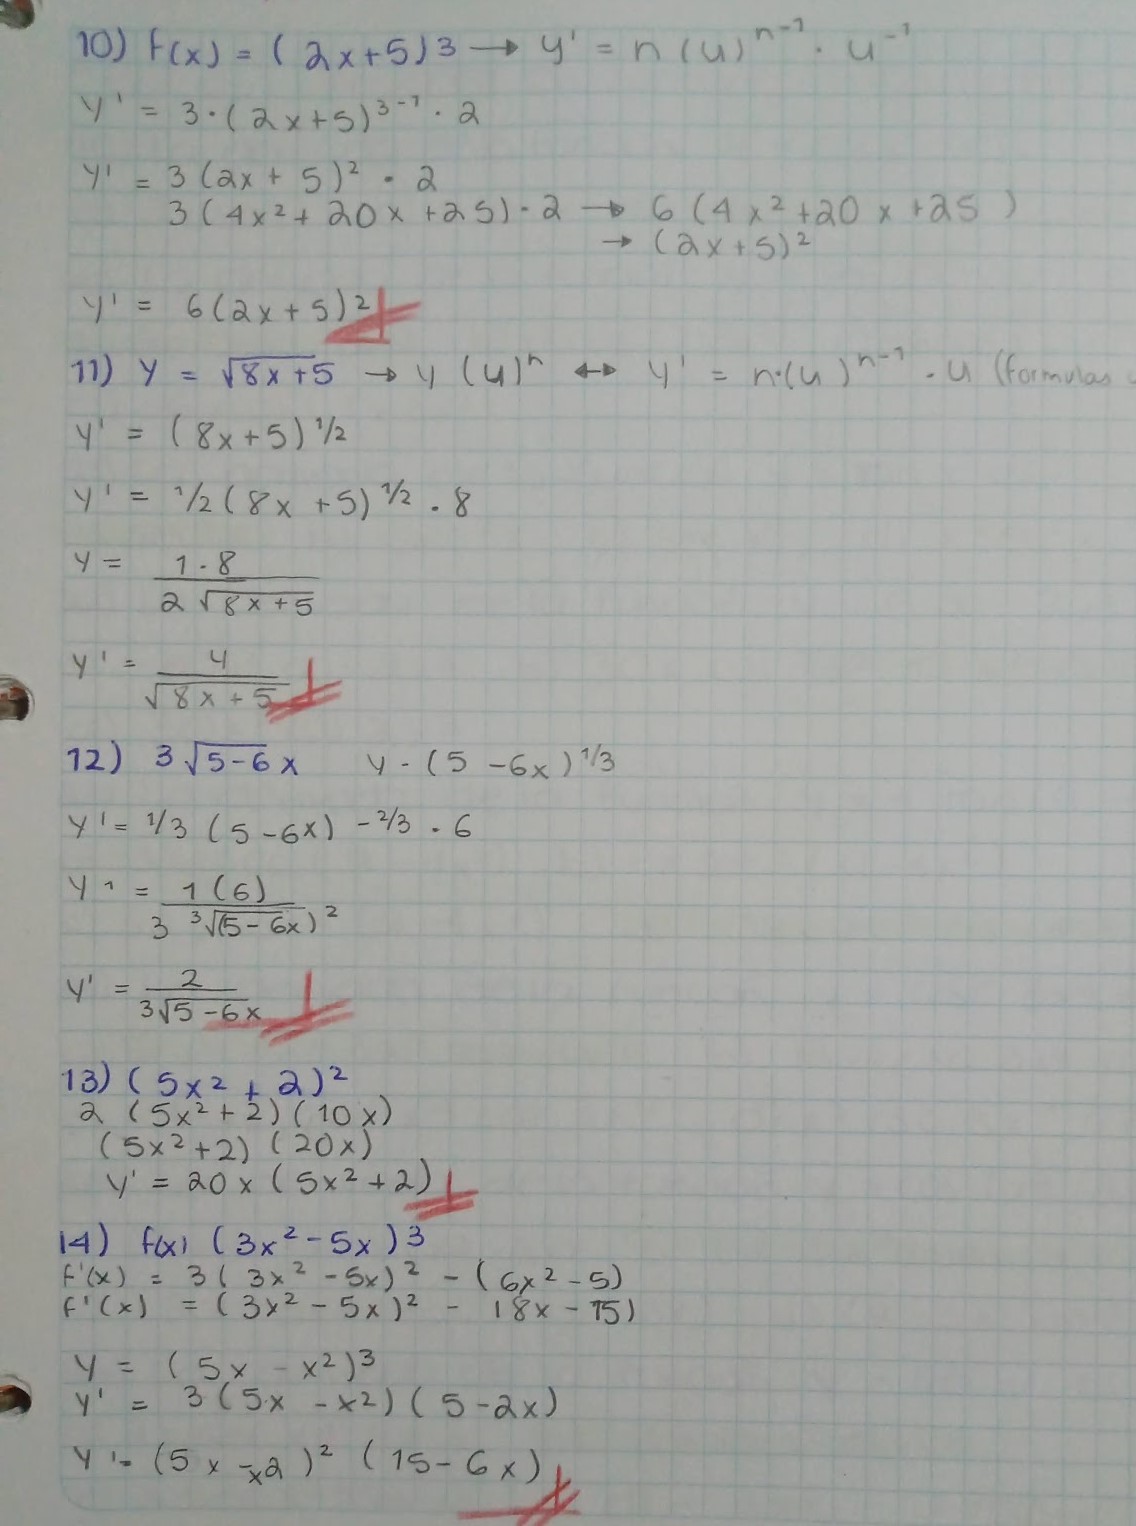 10) f(x) = (2x+5)3 → y' = n(u)ⁿ⁻¹ · u⁻¹
y' = 3·(2x+5)³⁻¹ · 2
y' = 3(2x+5)² · 2
3(4x²+20x+25)·2 → 6(4x²+20x+25)
→ (2x+5)²
y' = 6(2x+5)²
11) y = √8x+5 → y (u)ⁿ ↔ y' = n·(u)ⁿ⁻¹ · u (formulas
y' = (8x+5)1/2
y' = 1/2(8x+5)1/2 · 8
y = 1·8 / 2√8x+5
y' = 4 / √8x+5
12) 3√5-6x y - (5-6x)1/3
y' = 1/3 (5-6x) -2/3 · 6
y' = 1(6) / 3 ³√(5-6x)²
y' = 2 / 3√5-6x
13) (5x²+2)²
2 (5x²+2)(10x)
(5x²+2) (20x)
y' = 20x(5x²+2)
14) f(x) (3x²-5x)3
f'(x) = 3(3x²-5x)² - (6x²-5)
f'(x) = (3x²-5x)² - 18x-15)
y = (5x-x²)³
y' = 3(5x-x²)(5-2x)
y'= (5x-x2)² (15-6x)